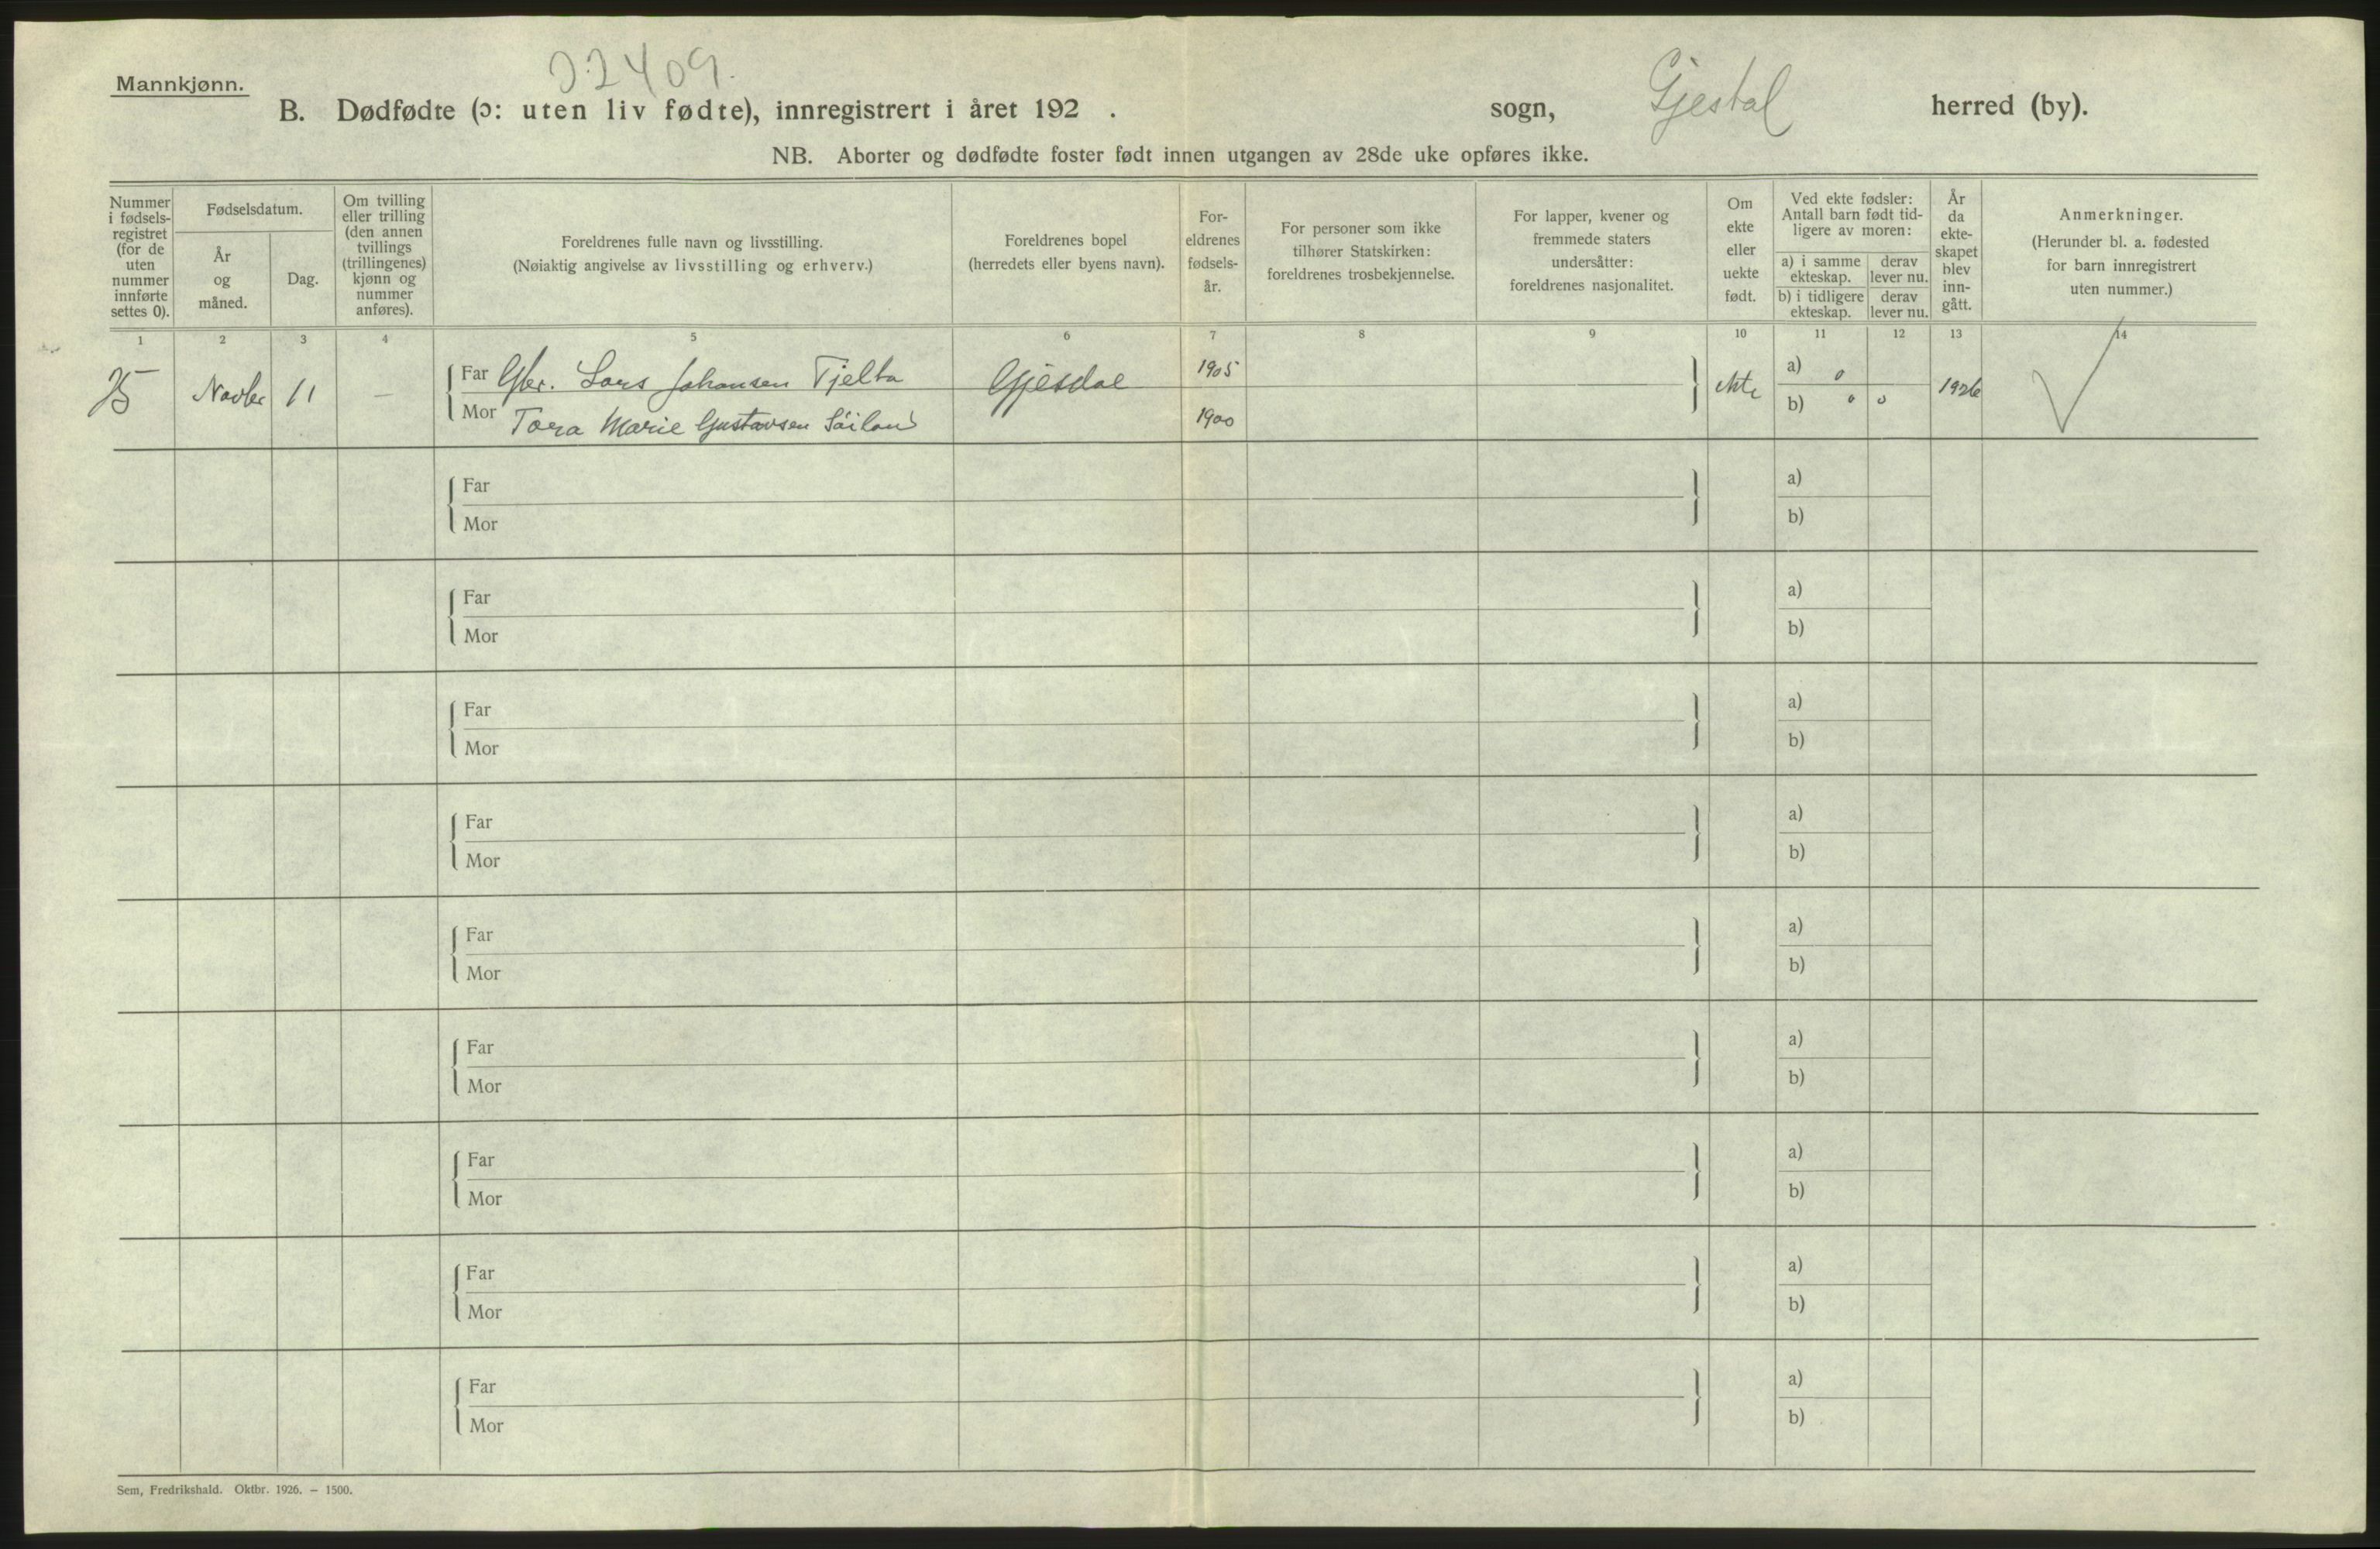 Mannkjønn.
22409.
B. Dødfødte (ɔ: uten liv fødte), innregistrert i året 192 . sogn, Gjestal herred (by).
NB. Aborter og dødfødte foster født innen utgangen av 28de uke opføres ikke.
Nummer
i fødsels-
registret
(for de
uten
nummer
innførte
settes 0).
Fødselsdatum.
År
og
måned.
Dag.
Om tvilling
eller trilling
(den annen
tvillings
(trillingenes)
kjønn og
nummer
anføres).
Foreldrenes fulle navn og livsstilling.
(Nøiaktig angivelse av livsstilling og erhverv.)
Foreldrenes bopel
(herredets eller byens navn).
For-
eldrenes
fødsels-
år.
For personer som ikke
tilhører Statskirken:
foreldrenes trosbekjennelse.
For lapper, kvener og
fremmede staters
undersåtter:
foreldrenes nasjonalitet.
Om
ekte
eller
uekte
født.
Ved ekte fødsler:
Antall barn født tid-
ligere av moren:
a) i samme
ekteskap.
derav
lever nu.
b) i tidligere
ekteskap.
derav
lever nu.
År
da
ekte-
skapet
blev
inn-
gått.
Anmerkninger.
(Herunder bl. a. fødested
for barn innregistrert
uten nummer.)
1 2 3 4 5 6 7 8 9 10 11 12 13 14
25 Novbr 11 — Far Gbr. Lars Johansen Tjelta Gjesdal 1905 ekte a) 0 1926
Mor Tora Marie Gustavsen 1900 b) 0 0
Far a)
Mor b)
Far a)
Mor b)
Far a)
Mor b)
Far a)
Mor b)
Far a)
Mor b)
Far a)
Mor b)
Far a)
Mor b)
Far a)
Mor b)
Far a)
Mor b)
Sem, Fredrikshald. Oktbr. 1926. – 1500.